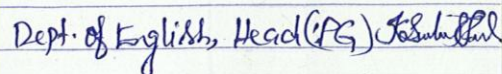 Dept. of English, Head (PG)